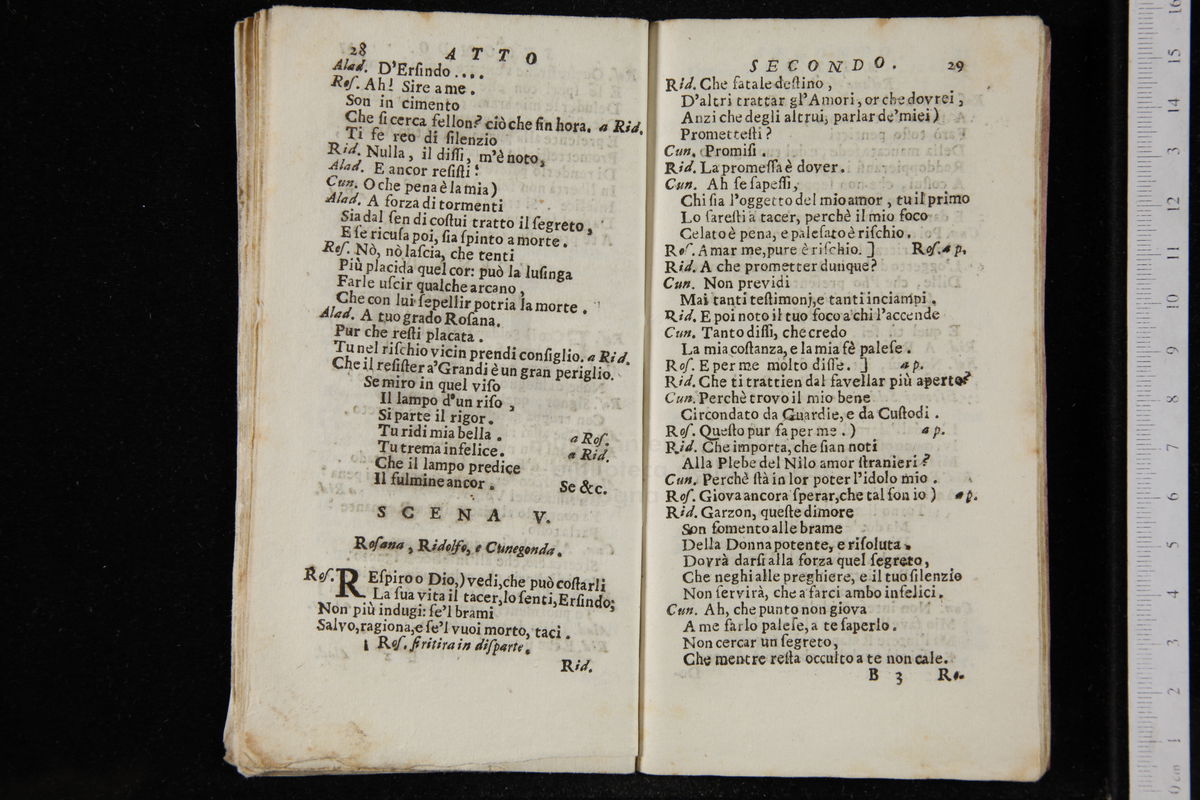 28 ATTO
Alad. D'Erſindo....
Roſ. Ah! Sire a me.
Son in cimento
Che ſi cerca fellon? ciò che ſin hora. a Rid.
Ti fe reo di ſilenzio
Rid. Nulla, il diſſi, m'è noto,
Alad. E ancor reſiſti?
Cun. O che pena è la mia)
Alad. A forza di tormenti
Sia dal ſen di coſtui tratto il ſegreto,
E ſe ricuſa poi, ſia ſpinto a morte.
Roſ. Nò, nò laſcia, che tenti
Più placida quel cor: può la luſinga
Farle uſcir qualche arcano,
Che con lui ſepellir potria la morte.
Alad. A tuo grado Roſana.
Pur che reſti placata.
Tu nel riſchio vicin prendi conſiglio. a Rid.
Che il reſiſter a'Grandi è un gran periglio.
Se miro in quel viſo
Il lampo d'un riſo,
Si parte il rigor.
Tu ridi mia bella. a Roſ.
Tu trema infelice. a Rid.
Che il lampo predice
Il fulmine ancor. Se &c.
SCENA V.
Roſana, Ridolfo, e Cunegonda.
Roſ. REſpiro o Dio,) vedi, che può coſtarli
La ſua vita il tacer, lo ſenti, Erſindo;
Non più indugi: ſe'l brami
Salvo, ragiona, e ſe'l vuoi morto, taci.
Roſ. ſi ritira in diſparte.
Rid.
SECONDO. 29
Rid. Che fatale deſtino,
D'altri trattar gl'Amori, or che dovrei,
Anzi che degli altrui, parlar de'miei)
Prometteſti?
Cun. Promiſi.
Rid. La promeſſa è dover.
Cun. Ah ſe ſapeſſi,
Chi ſia l'oggetto del mio amor, tu il primo
Lo ſareſti a tacer, perchè il mio foco
Celato è pena, e paleſato è riſchio.
Roſ. Amar me, pure è riſchio. ] Roſ. a p.
Rid. A che prometter dunque?
Cun. Non previdi
Mai tanti teſtimonj, e tanti inciampi.
Rid. E poi noto il tuo foco a chi l'accende
Cun. Tanto diſſi, che credo
La mia coſtanza, e la mia fè paleſe.
Roſ. E per me molto diſſe. ] a p.
Rid. Che ti trattien dal favellar più aperto?
Cun. Perchè trovo il mio bene
Circondato da Guardie, e da Cuſtodi.
Roſ. Queſto pur fa per me.) a p.
Rid. Che importa, che ſian noti
Alla Plebe del Nilo amor ſtranieri?
Cun. Perchè ſtà in lor poter l'idolo mio.
Roſ. Giova ancora ſperar, che tal ſon io) a p.
Rid. Garzon, queſte dimore
Son fomento alle brame
Della Donna potente, e riſoluta.
Dovrà darſi alla forza quel ſegreto,
Che neghi alle preghiere, e il tuo ſilenzio
Non ſervirà, che a farci ambo infelici.
Cun. Ah, che punto non giova
A me farlo paleſe, a te ſaperlo.
Non cercar un ſegreto,
Che mentre reſta occulto a te non cale.
B 3 Ro.